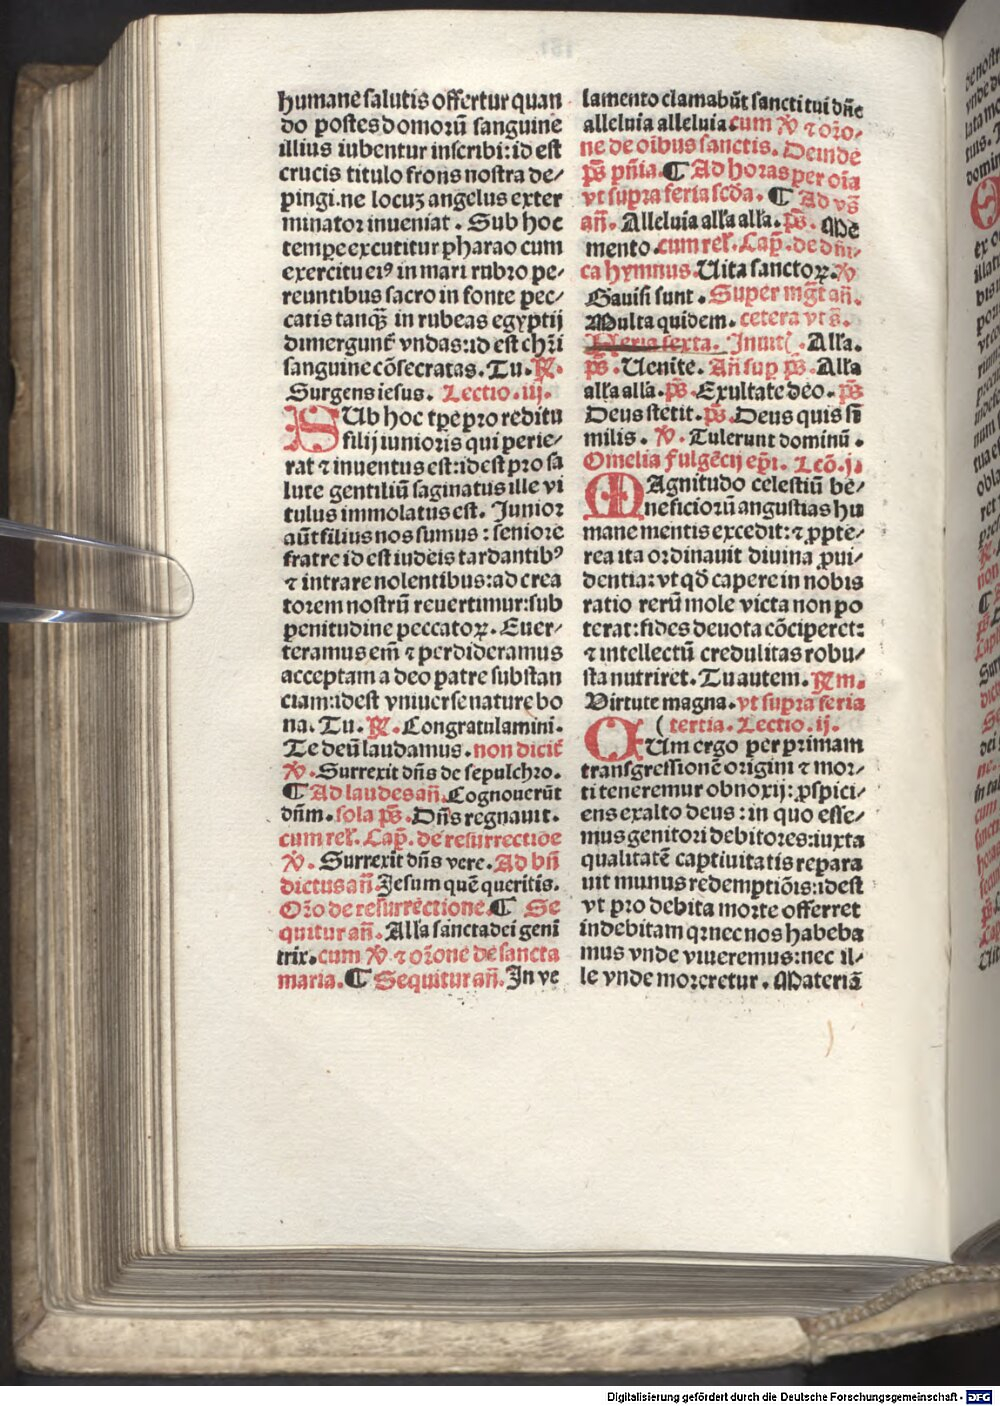 humane salutis offertur quan
do postes domorū sanguine
illius iubentur inscribi: id est
crucis titulo frons nostra de⸗
pingi. ne locuꝫ angelus exter
minator inueniat. Sub hoc
tempe excutitur pharao cum
exercitu eiꝰ in mari rubro pe⸗
reuntibus sacro in fonte pec⸗
catis tanqꝫ in rubeas egyptij
dimergunt̄ vndas: id est chr̄i
sanguine cōsecratas. Tu. ℟.
Surgens iesus. Lectio. iij.
SUb hoc tꝑe pro reditu
filij iunioris qui perie⸗
rat ⁊ inuentus est: id est pro sa
lute gentiliū saginatus ille vi
tulus immolatus est. Junior
aūt filius nos sumus: seniore
fratre id est iudeis tardantibꝰ
⁊ intrare nolentibus: ad crea
torem nostrū reuertimur: sub
penitudine peccatoꝝ. Euer⸗
teramus eīm ⁊ perdideramus
acceptam a deo patre substan
ciam: idest vniuerse nature bo
na. Tu. ℟. Congratulamini.
Te deū laudamus. non dicit̄
℣. Surrexit dn̄s de sepulchro.
¶ Ad laudes an̄. Cognouerūt
dn̄m. sola p̄s. Dn̄s regnauit.
cum rel̄. Cap̄. de resurrectioe
℣. Surrexit dn̄s vere. Ad bn̄
dictus an̄. Jesum quē queritis.
Or̄o de resurrectione. ¶ Se
quitur an̄. Alla sancta dei geni
trix. cum ℣ ⁊ or̄one de sancta
maria. ¶ Sequitur an̄. In ve
lamento clamabūt sancti tui dn̄e
alleluia alleluia. cum ℣ ⁊ or̄o⸗
ne de oībus sanctis. Deinde
p̄s pn̄ia. ¶ Ad horas per oīa
vt supra feria scd̄a. ¶ Ad vs̄
an̄. Alleluia alla alla. p̄s. Me
mento. cum rel̄. Cap̄. de dn̄i⸗
ca hymnus. Uita sanctoꝝ. ℣
Gauisi sunt. Super mḡt an̄.
Multa quidem. cetera vt s̄.
Feria sexta. Inuit̄. Alla.
p̄s. Uenite. An̄ sup p̄s. Alla
alla alla. p̄s. Exultate deo. p̄s
Deus stetit. p̄s. Deus quis si
milis. ℣. Tulerunt dominū.
Omelia fulgēcij ep̄i. Lcō. j.
MAgnitudo celestiū be⸗
neficiorū angustias hu
mane mentis excedit: ⁊ ꝓpte⸗
rea ita ordinauit diuina ꝓui⸗
dentia: vt qd̄ capere in nobis
ratio rerū mole victa non po
terat: fides deuota cōciperet:
⁊ intellectū credulitas robu⸗
sta nutriret. Tu autem. ℟m.
Virtute magna. vt supra feria
(tertia. Lectio. ij.
CUm ergo per primam
transgressionē origini ⁊ mor⸗
ti teneremur obnoxij: ꝓspici⸗
ens ex alto deus: in quo esse⸗
mus genitori debitores: iuxta
qualitatē captiuitatis repara
uit munus redemptiōis: idest
vt pro debita morte offerret
indebitam qꝛ nec nos habeba
mus vnde viueremus: nec il⸗
le vnde moreretur. Materiā
Digitalisierung gefördert durch die Deutsche Forschungsgemeinschaft - DFG